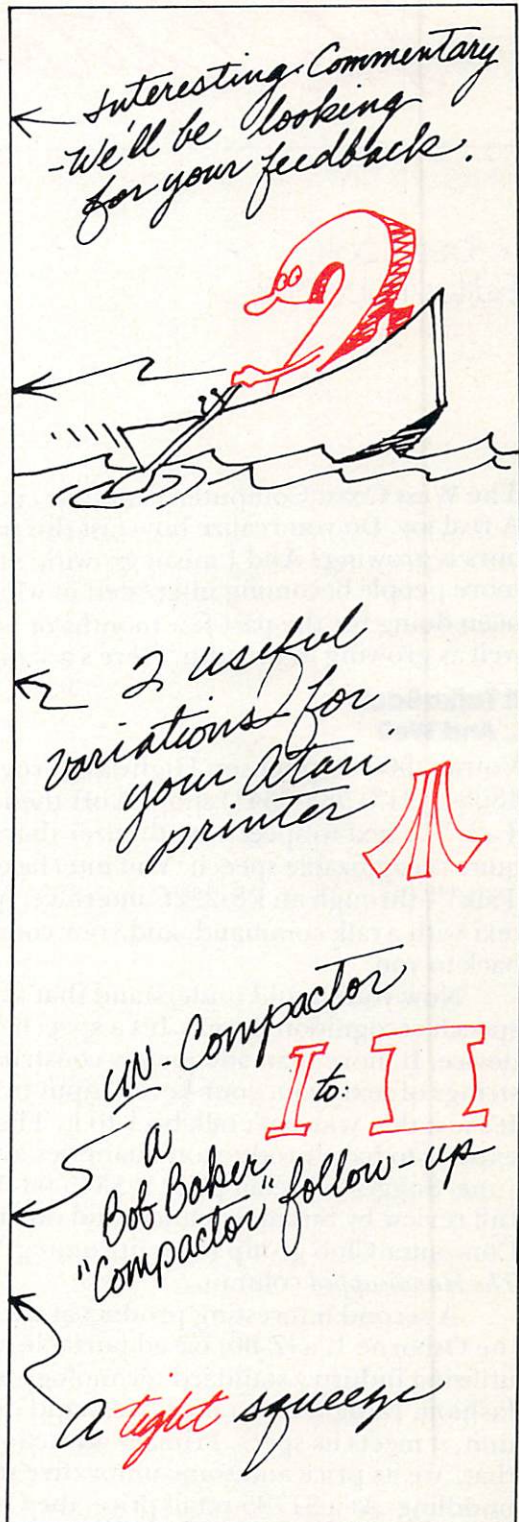 Interesting Commentary
-We'll be looking
for your feedback.
2 useful
variations for
your Atari
printer
UN-Compactor
I to: II
a
Bob Baker
"Compactor" follow-up
a tight squeeze